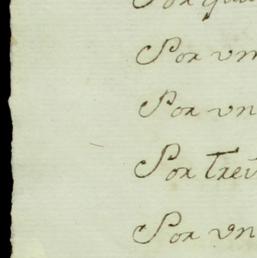 Por
Por vn
Por vn
Por Trei
Por vn